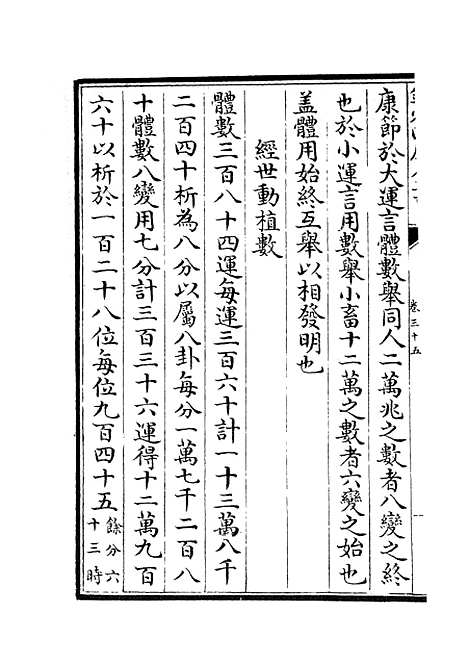 康節於大運言體數舉同人二萬兆之數者八變之終
也於小運言用數舉小畜十二萬之數者六變之始也
蓋體用始終互舉以相發明也
經世動植數
體數三百八十四運每運三百六十計一十三萬八千
二百四十析為八分以屬八卦每分一萬七千二百八
十體數八變用七分計三百三十六運得十二萬九百
六十以析於一百二十八位每位九百四十五餘分六十三時
卷三十五